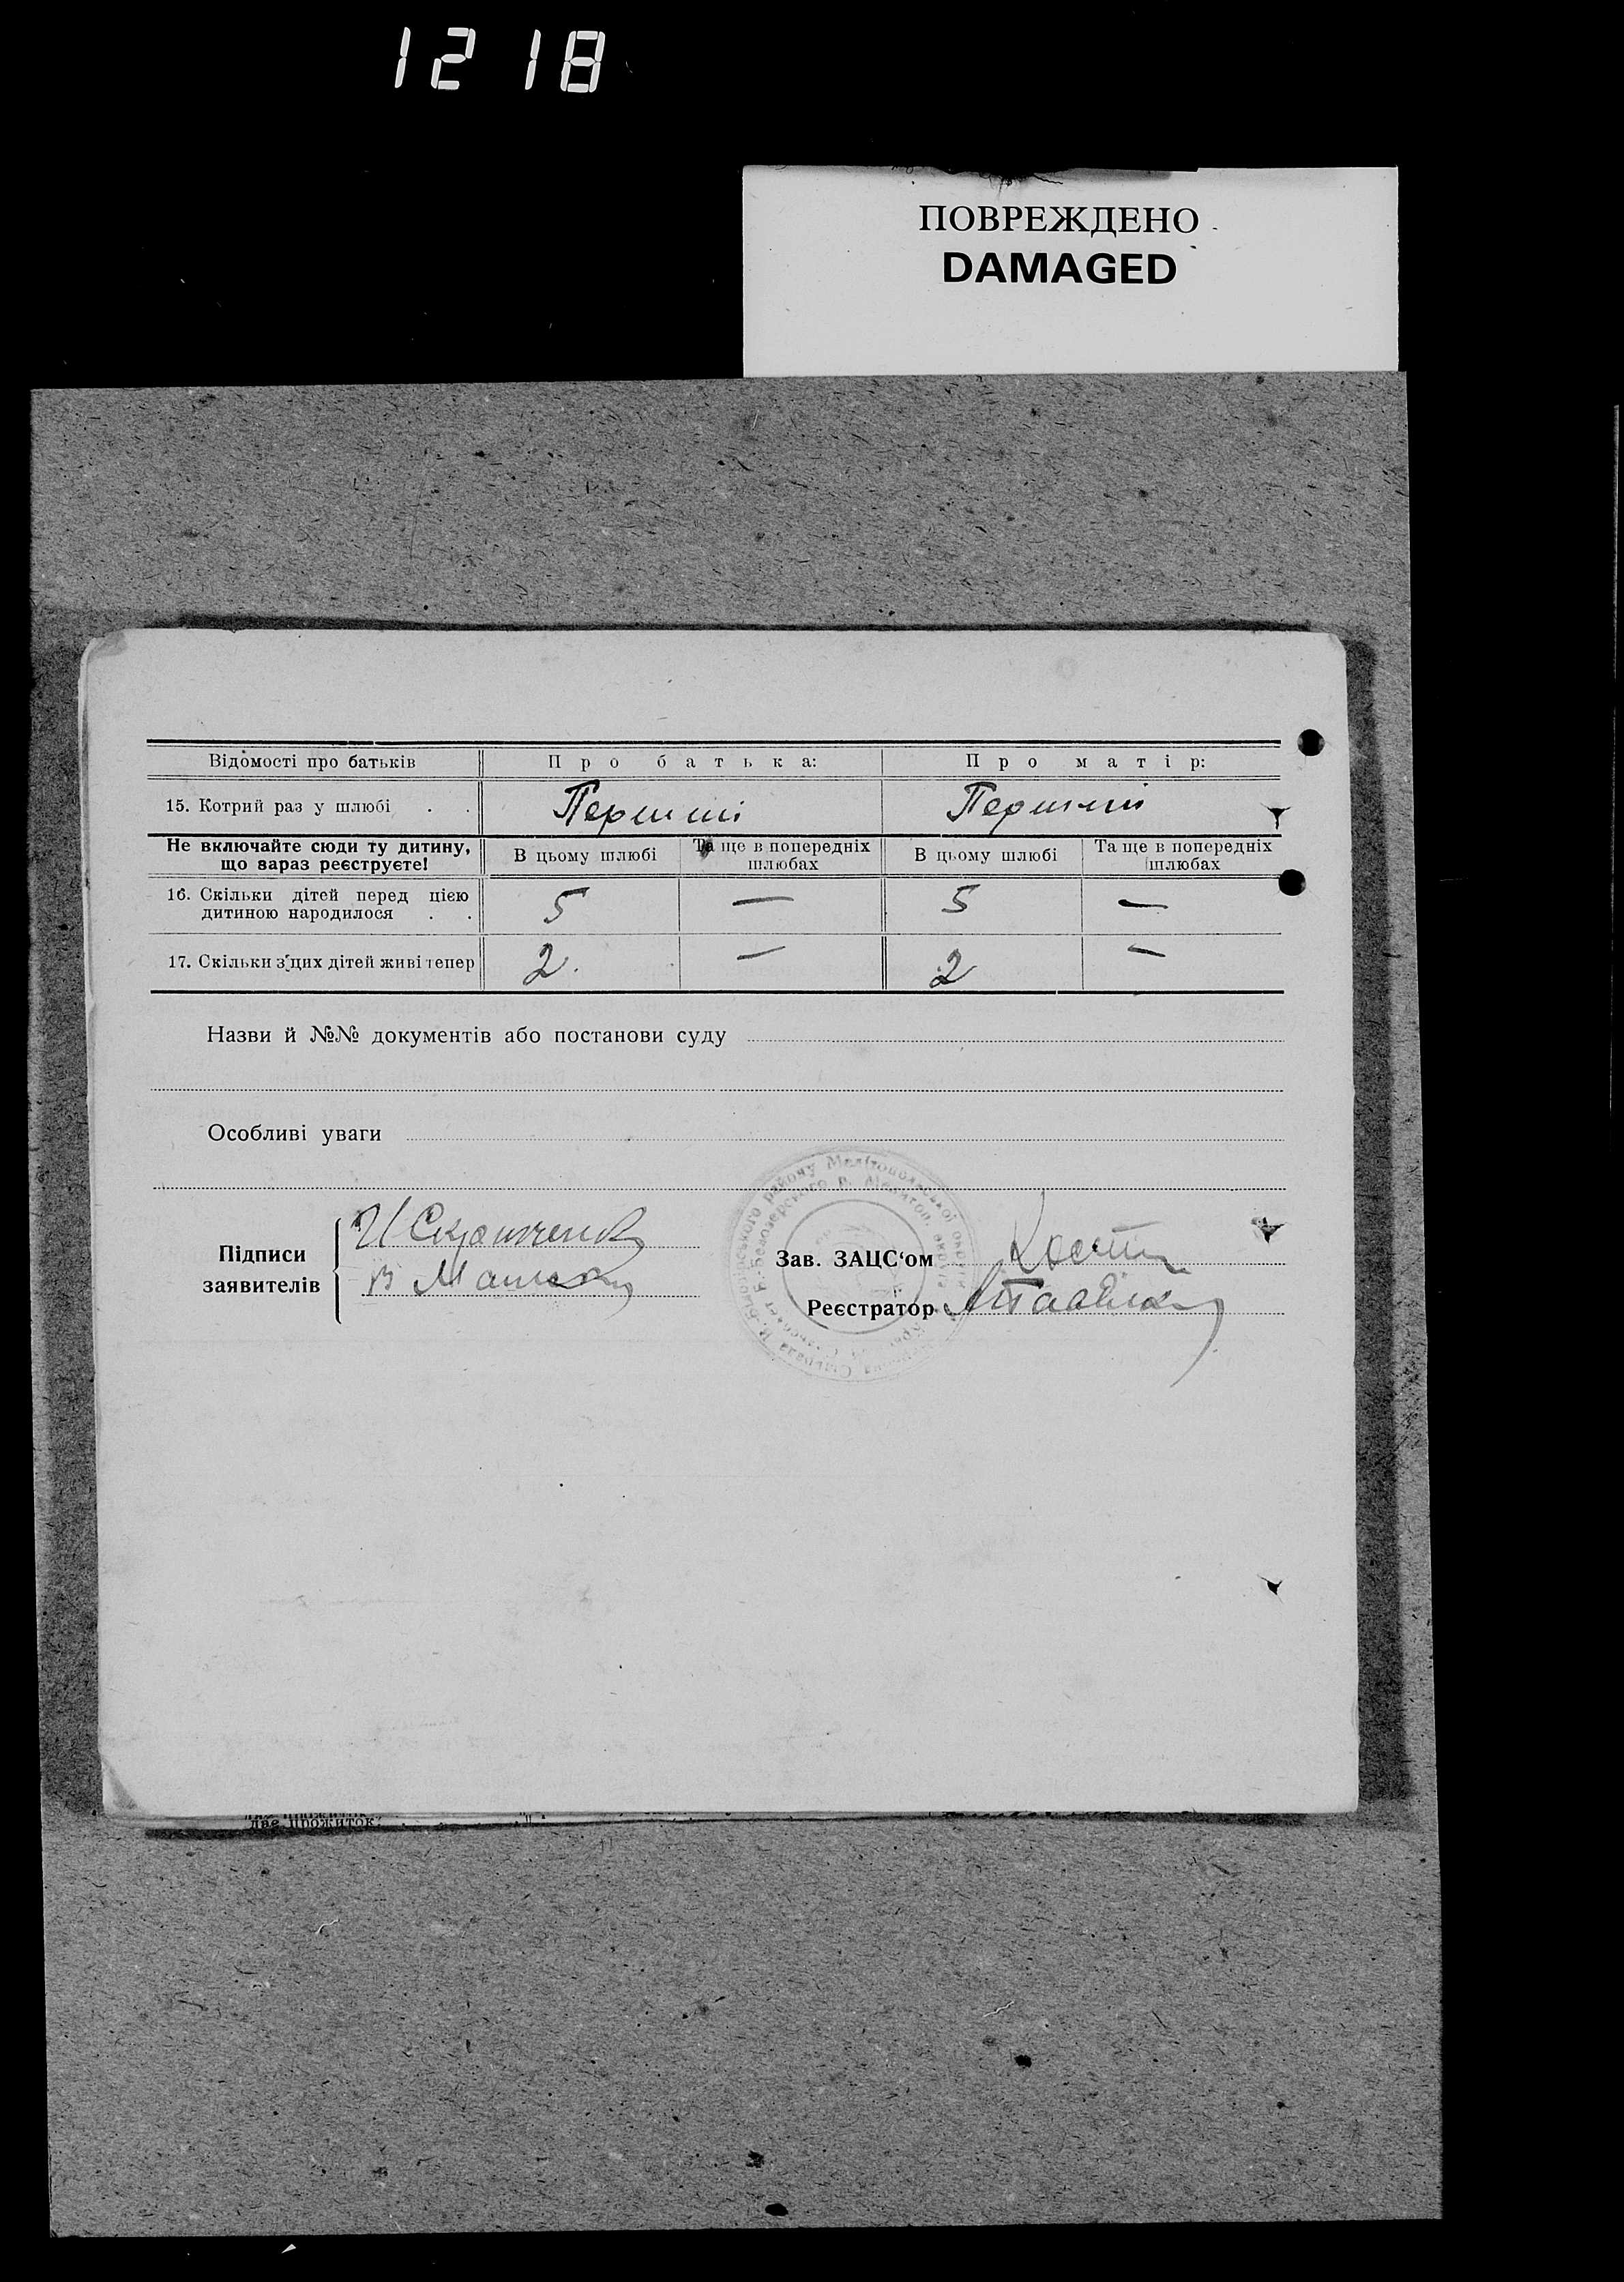 1218
ПОВРЕЖДЕНО
DAMAGED
Відомості про батьків Про батька: Про матір:
15. Котрий раз у шлюбі . . Перший Перший
Не включайте сюди ту дитину, що вараз реєструєте! В цьому шлюбі Та ще в попередніх шлюбах В цьому шлюбі Та ще в попередніх шлюбах
16. Скільки дітей перед цією дитиною народилося . . 5 — 5 —
17. Скільки з цих дітей живі тепер 2. — 2 —
Назви й №№ документів або постанови суду
Особливі уваги
Підписи заявителів
Зав. ЗАЦС‘ом
Реєстратор
две прожиток